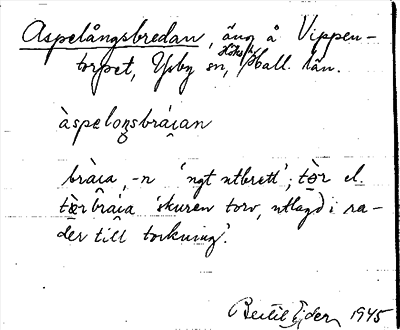 Aspelångsbredan, äng å Vippen-
torpet, Ysby sn, Höks hd, Hall. län.
àspeloŋsbráian
bràia, -n 'ngt utbrett'; tòr el.
tòrbráia 'skuren torv, utlagd i ra-
der till torkning'.
Bertil Ejder 1945